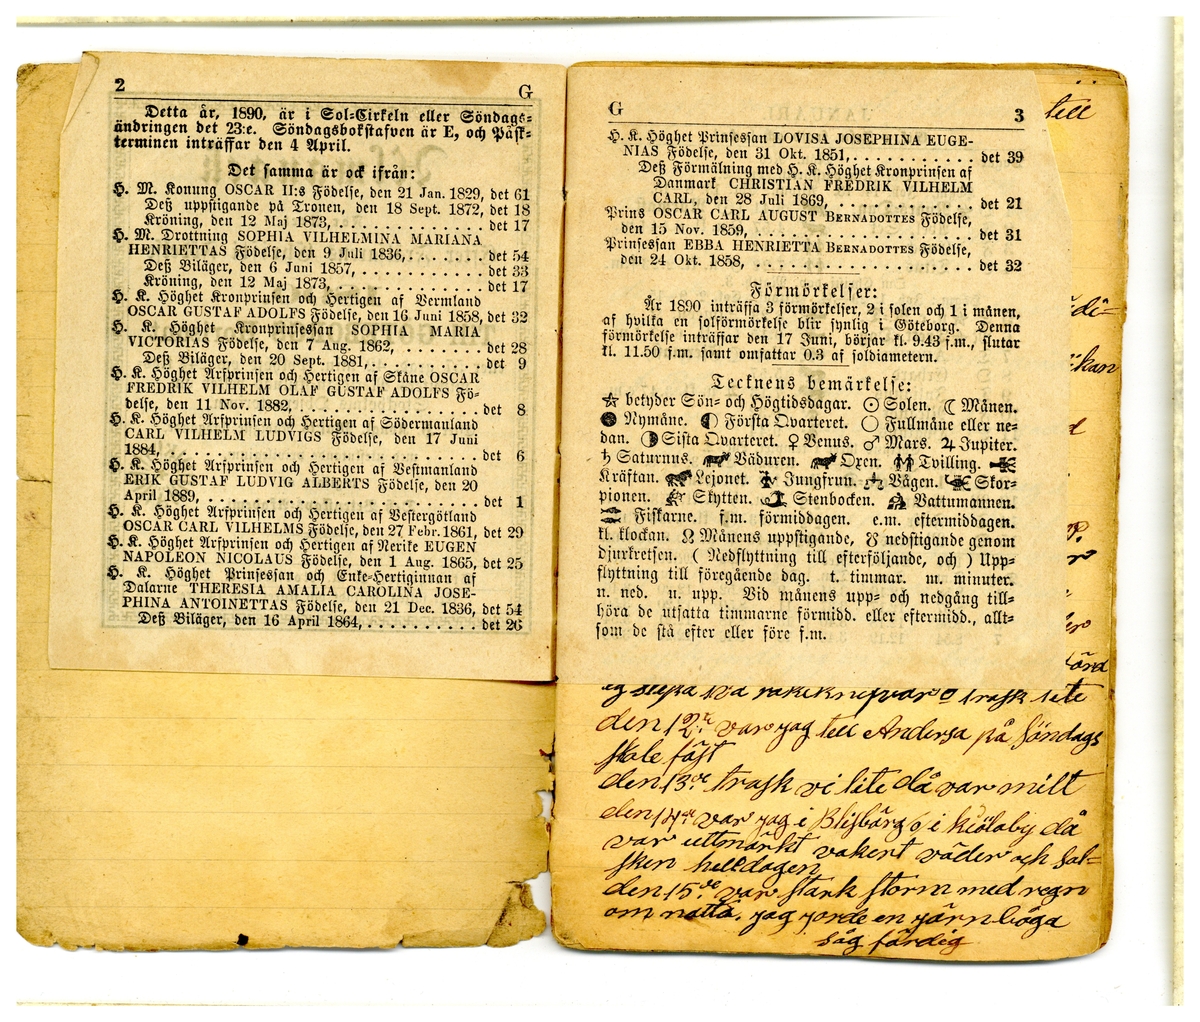 2
G
Detta år, 1890, är i Sol-Cirkeln eller Söndags-
ändringen det 23:e. Söndagsbokstafven är E, och Påsk-
terminen inträffar den 4 April.
Det samma är ock ifrån:
H. M. Konung OSCAR II:s Födelse, den 21 Jan. 1829, det 61
Deß uppstigande på Tronen, den 18 Sept. 1872, det 18
Kröning, den 12 Maj 1873, . . . . . . . . . . . . . det 17
H. M. Drottning SOPHIA VILHELMINA MARIANA
HENRIETTAS Födelse, den 9 Juli 1836, . . . . . . . det 54
Deß Biläger, den 6 Juni 1857, . . . . . . . . . . . det 33
Kröning, den 12 Maj 1873, . . . . . . . . . . . . . det 17
H. K. Höghet Kronprinsen och Hertigen af Vermland
OSCAR GUSTAF ADOLFS Födelse, den 16 Juni 1858, det 32
H. K. Höghet Kronprinsessan SOPHIA MARIA
VICTORIAS Födelse, den 7 Aug. 1862, . . . . . . . . det 28
Deß Biläger, den 20 Sept. 1881, . . . . . . . . . . det 9
H. K. Höghet Arfprinsen och Hertigen af Skåne OSCAR
FREDRIK VILHELM OLAF GUSTAF ADOLFS Fö-
delse, den 11 Nov. 1882, . . . . . . . . . . . . . . det 8
H. K. Höghet Arfprinsen och Hertigen af Södermanland
CARL VILHELM LUDVIGS Födelse, den 17 Juni
1884, . . . . . . . . . . . . . . . . . . . . . . . det 6
H. K. Höghet Arfprinsen och Hertigen af Vestmanland
ERIK GUSTAF LUDVIG ALBERTS Födelse, den 20
April 1889, . . . . . . . . . . . . . . . . . . . . det 1
H. K. Höghet Arfprinsen och Hertigen af Vestergötland
OSCAR CARL VILHELMS Födelse, den 27 Febr. 1861, det 29
H. K. Höghet Arfprinsen och Hertigen af Nerike EUGEN
NAPOLEON NICOLAUS Födelse, den 1 Aug. 1865, det 25
H. K. Höghet Prinsessan och Enke-Hertiginnan af
Dalarne THERESIA AMALIA CAROLINA JOSE-
PHINA ANTOINETTAS Födelse, den 21 Dec. 1836, det 54
Deß Biläger, den 16 April 1864, . . . . . . . . . . det 26
G
3
H. K. Höghet Prinsessan LOVISA JOSEPHINA EUGE-
NIAS Födelse, den 31 Okt. 1851, . . . . . . . . . . det 39
Deß Förmälning med H. K. Höghet Kronprinsen af
Danmark CHRISTIAN FREDRIK VILHELM
CARL, den 28 Juli 1869, . . . . . . . . . . . . . . det 21
Prins OSCAR CARL AUGUST BERNADOTTES Födelse,
den 15 Nov. 1859, . . . . . . . . . . . . . . . . . det 31
Prinsessan EBBA HENRIETTA BERNADOTTES Födelse,
den 24 Okt. 1858, . . . . . . . . . . . . . . . . . det 32
Förmörkelser:
År 1890 inträffa 3 förmörkelser, 2 i solen och 1 i månen,
af hvilka en solförmörkelse blir synlig i Göteborg. Denna
förmörkelse inträffar den 17 Juni, börjar kl. 9.43 f.m., slutar
kl. 11.50 f.m. samt omfattar 0.3 af soldiametern.
Tecknens bemärkelse:
betyder Sön- och Högtidsdagar. ☉ Solen. ☾ Månen.
Nymåne. Första Qvarteret. Fullmåne eller ne-
dan. Sista Qvarteret. ♀ Venus. ♂ Mars. ♃ Jupiter.
♄ Saturnus. Väduren. Oxen. Tvilling.
Kräftan. Lejonet. Jungfrun. Vågen. Skor-
pionen. Skytten. Stenbocken. Vattumannen.
Fiskarne. f.m. förmiddagen. e.m. eftermiddagen.
kl. klockan. ☊ Månens uppstigande, ☋ nedstigande genom
djurkretsen. ( Nedflyttning till efterföljande, och ) Upp-
flyttning till föregående dag. t. timmar. m. minuter.
n. ned. u. upp. Vid månens upp- och nedgång till-
höra de utsatta timmarne förmidd. eller eftermidd., allt-
som de stå efter eller före f.m.
till
trask lite
den 12te var jag till Andersa på Söndags
skole fäst
den 13de trask vi lite då var milt
den 14de var jag i Blisbärg o i kiölaby då
var uttmärkt vakert väder och sol-
sken heledagen
den 15de var stark storm med regn
om natta. jag jorde en järnbåga
såg färdig